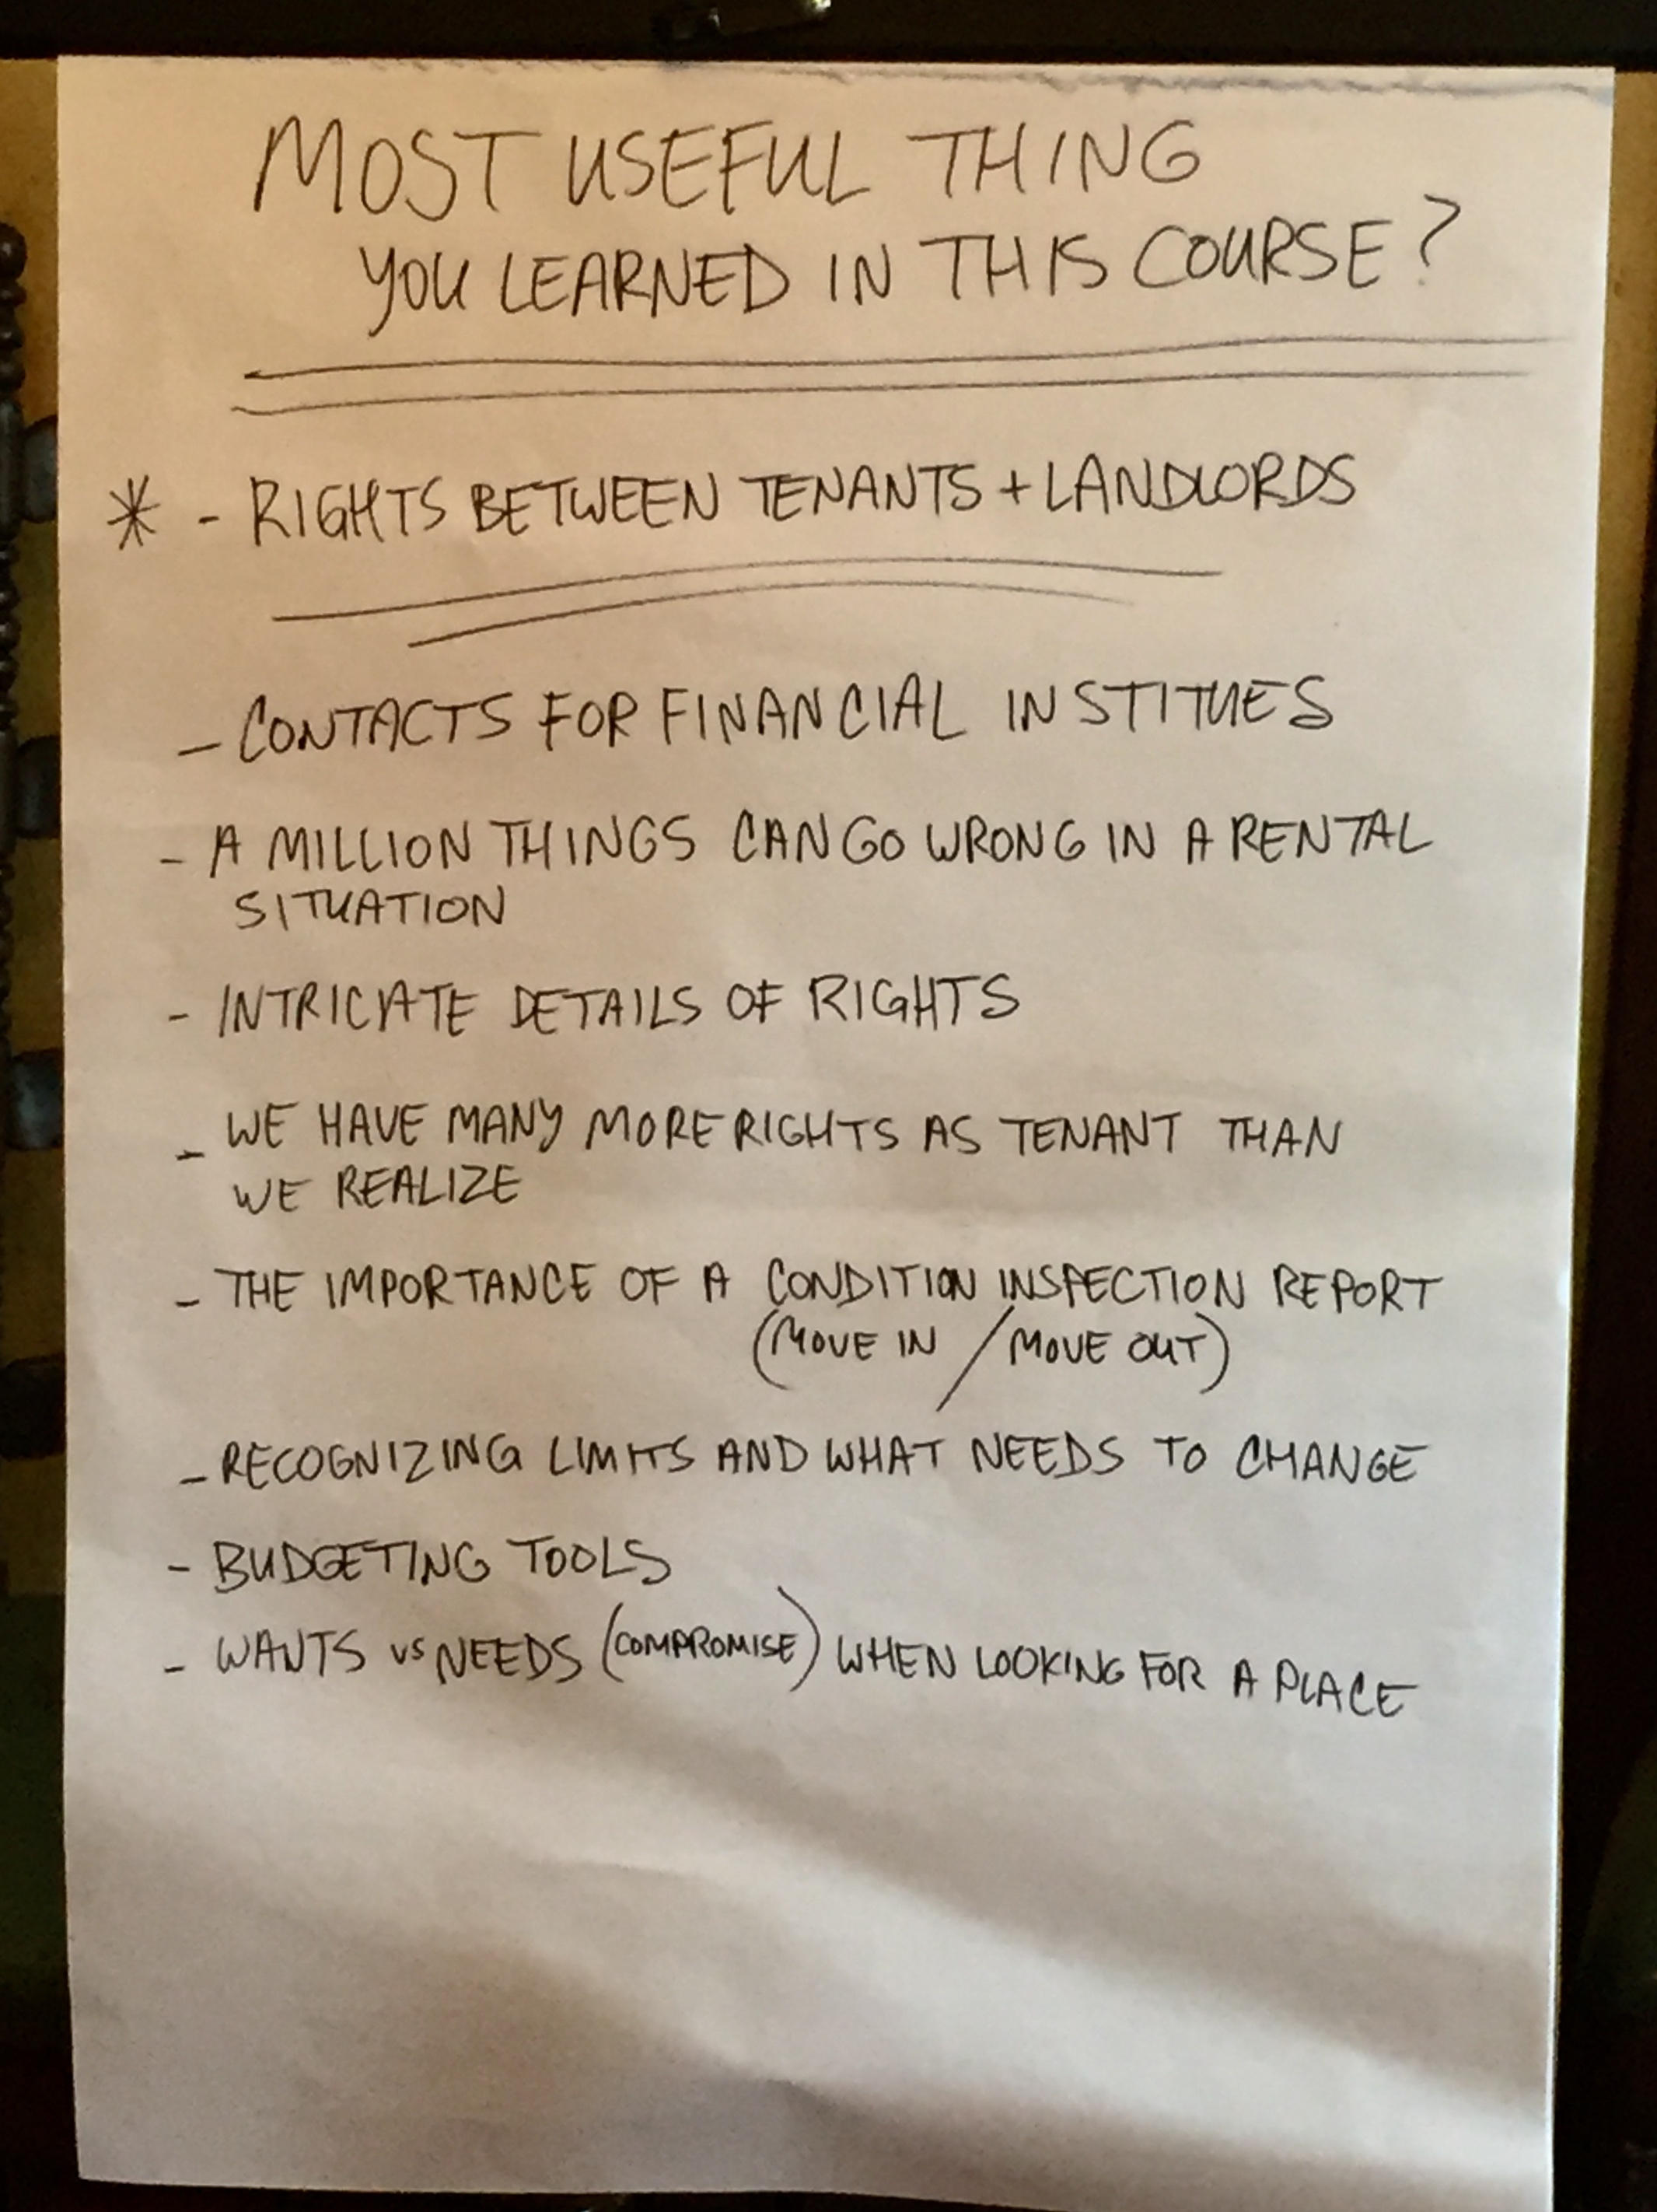 MOST USEFUL THING
YOU LEARNED IN THIS COURSE?
* - RIGHTS BETWEEN TENANTS + LANDLORDS
- CONTACTS FOR FINANCIAL INSTITUES
- A MILLION THINGS CAN GO WRONG IN A RENTAL
SITUATION
- INTRICATE DETAILS OF RIGHTS
- WE HAVE MANY MORE RIGHTS AS TENANT THAN
WE REALIZE
- THE IMPORTANCE OF A CONDITION INSPECTION REPORT
(MOVE IN / MOVE OUT)
- RECOGNIZING LIMITS AND WHAT NEEDS TO CHANGE
- BUDGETING TOOLS
- WANTS vs NEEDS (COMPROMISE) WHEN LOOKING FOR A PLACE